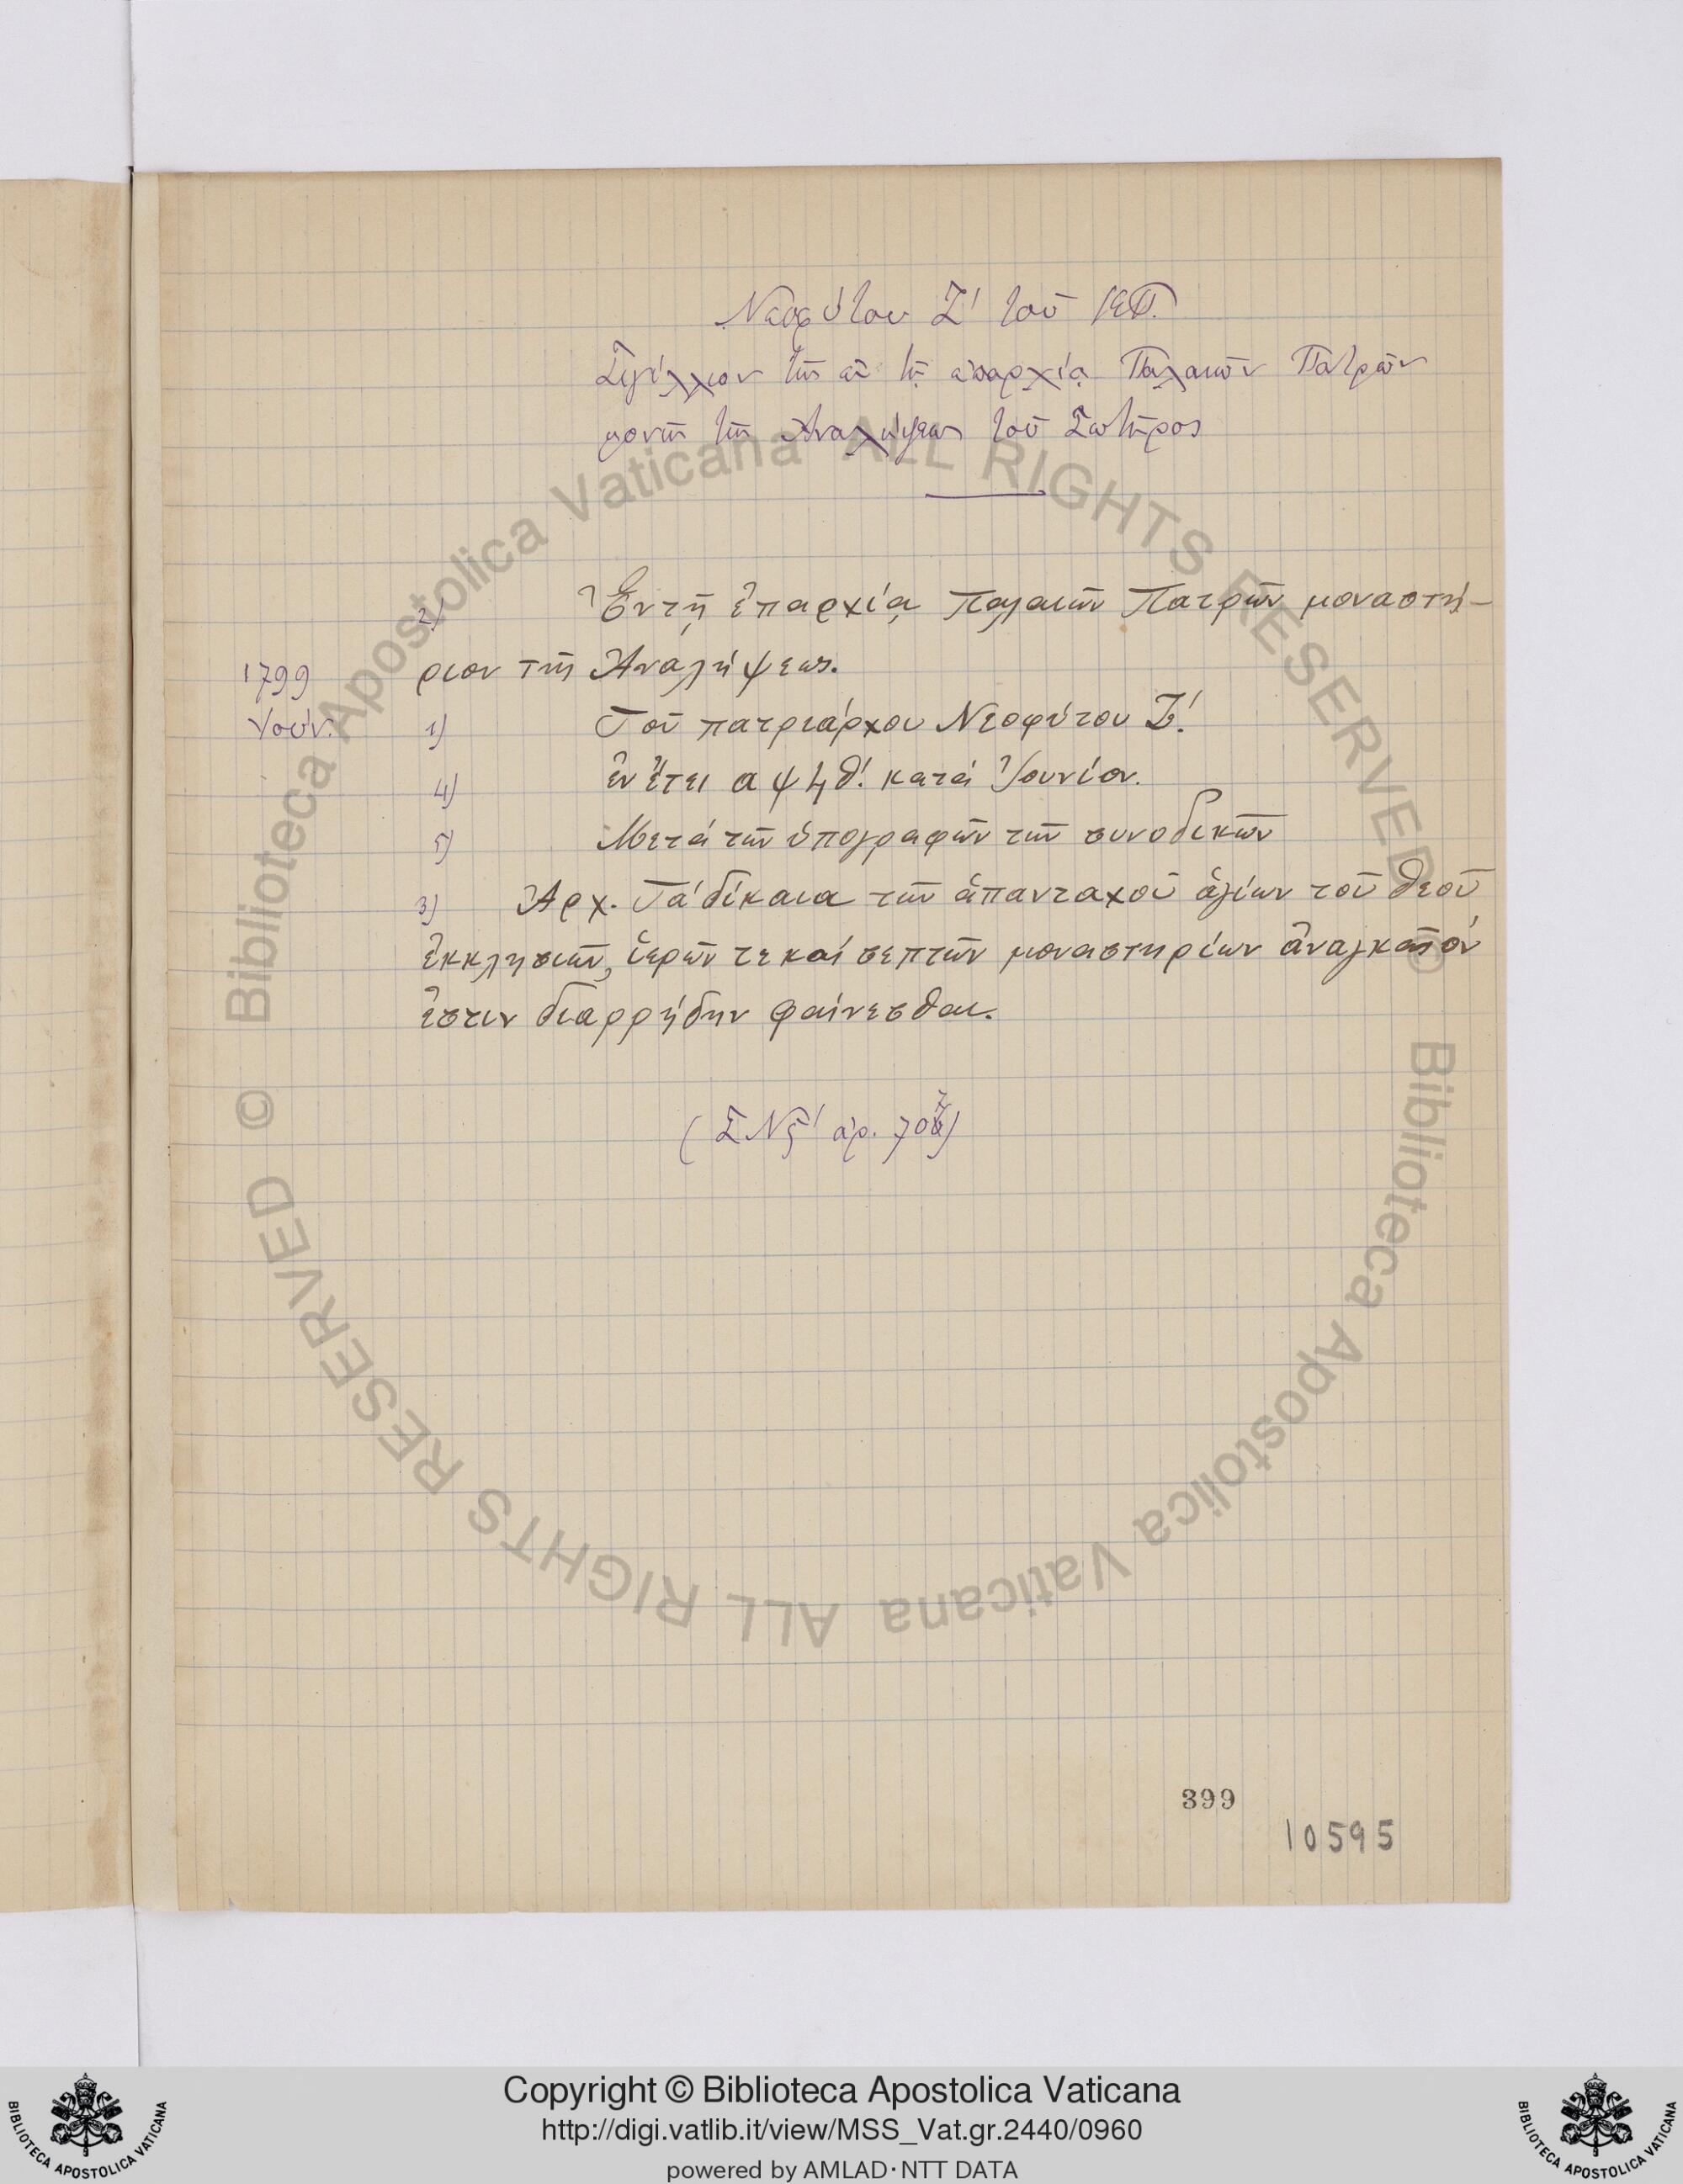 Νεοφύτου Ζ' τοῦ ΚΠ.
Σιγίλλιον τῆς ἐν τῇ ἐπαρχίᾳ Παλαιῶν Πατρῶν
μονῆς τῆς Ἀναλήψεως τοῦ Σωτῆρος
2) Ἐν τῇ ἐπαρχίᾳ Παλαιῶν Πατρῶν μοναστή-
1799 ριον τῆς Ἀναλήψεως.
Ἰούν. 1) Τοῦ πατριάρχου Νεοφύτου Ζ'.
4) ἐν ἔτει αψϟθ'. κατά Ἰουνίον.
5) Μετά τῶν ὑπογραφῶν τῶν συνοδικῶν
3) Ἀρχ. Τά δίκαια τῶν ἁπανταχοῦ ἁγίων τοῦ θεοῦ
ἐκκλησιῶν, ἱερῶν τε καί σεπτῶν μοναστηρίων ἀναγκαῖόν
ἐστιν διαρρήδην φαίνεσθαι.
(ΣΝξ' ἀρ. 707)
399
10595
© Biblioteca Apostolica Vaticana ALL RIGHTS RESERVED
© Biblioteca Apostolica Vaticana ALL RIGHTS RESERVED
Copyright © Biblioteca Apostolica Vaticana
http://digi.vatlib.it/view/MSS_Vat.gr.2440/0960
powered by AMLAD·NTT DATA
BIBLIOTECA APOSTOLICA VATICANA
BIBLIOTECA APOSTOLICA VATICANA